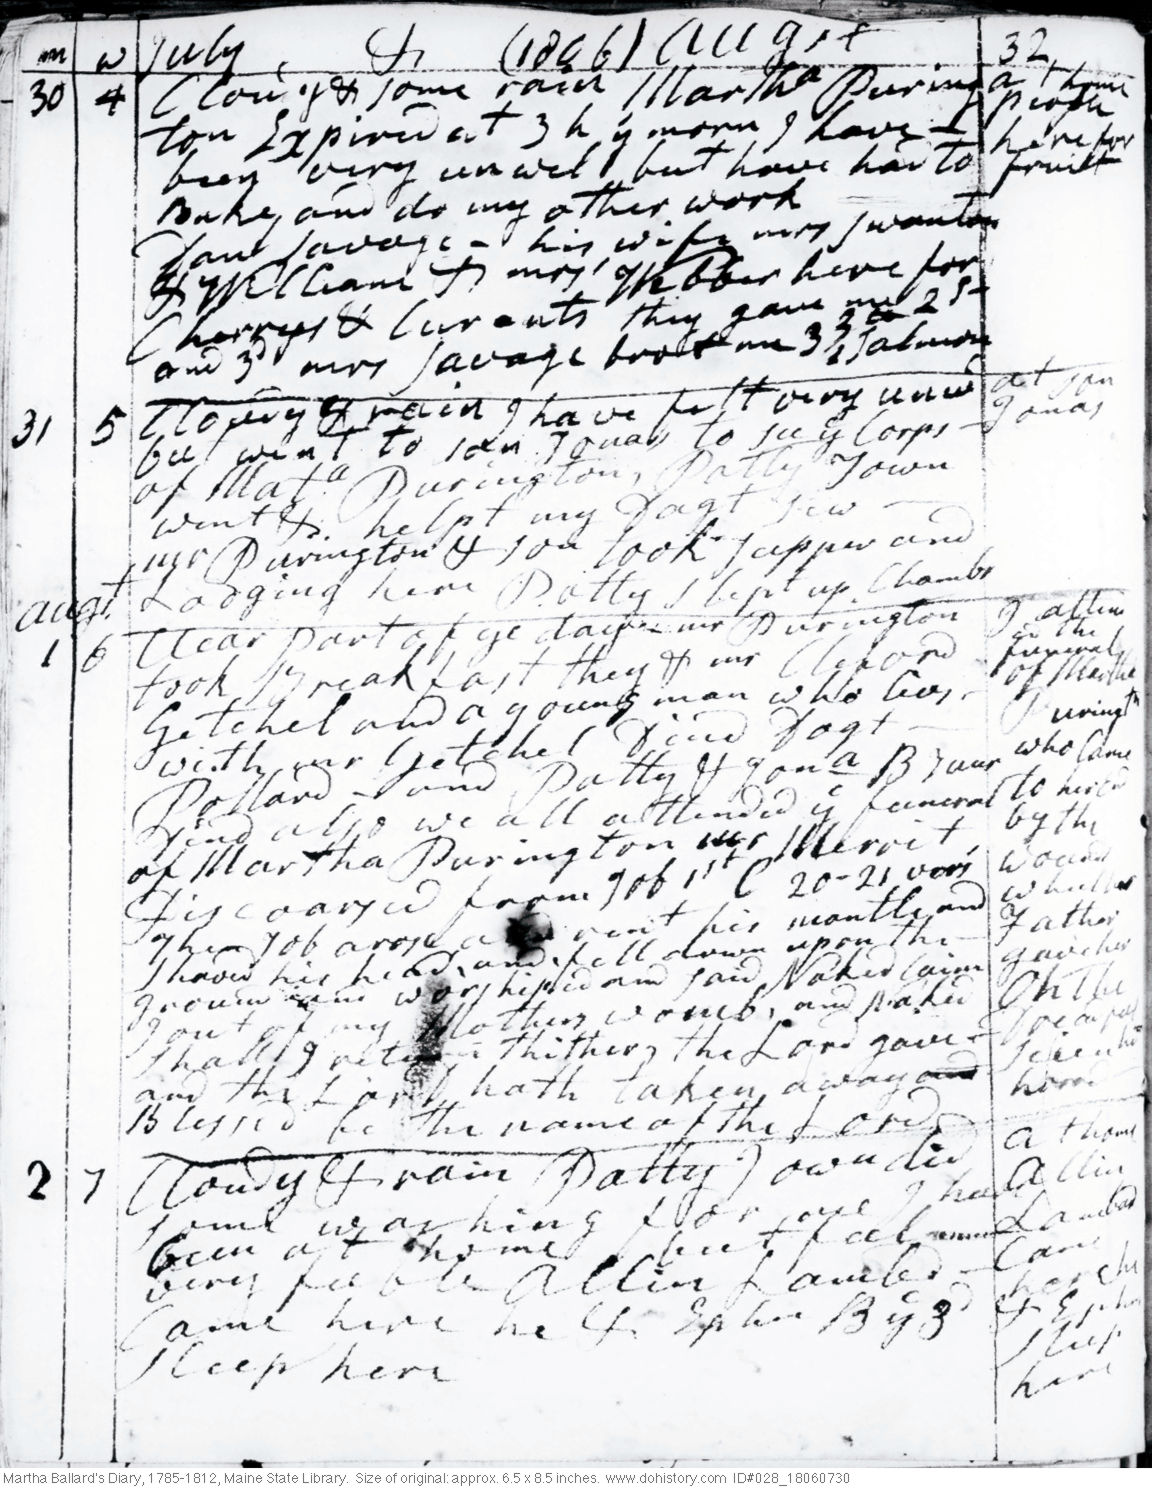 m w July & (1806) August 32
30 4 Cloudy & some rain Martha Puring
ton Expired at 3 h y morn I have
been very unwel but have had to
Bake, and do my other work
Dan Savage - his wife mrs Swanton
& William & mrs Webber here for
Cherrys & Curents they gave me 2 S
and 3d mrs Savage brot me 3 ½ Salmon
at home
people
here for
fruitt
31 5 Clowdy & rain I have felt very unwel
but went to son Jonas to see y Corps
of Mata Purington, Patty Town
went & helpt my Dagt sew
mr Purington & son took supper and
Lodging here Patty Slept up Chambr
at son
Jonas
augt
1 6 Clear part of ye day - mr Purington
took Breakfast they & mr
Getchel and a young man who lives
with mr Getchel Dind Dagt
Pollard - and Patty & Jona B Junr
dind also we all attended y funeral
of Martha Purington mr Merrit
Discoarsed from Job 1st C 20-21 vers
Then Job arose and rent his mantle and
Shaved his head, and fell down upon the
ground and worshiped and said Naked Caim
I out of my Mothers womb, and Naked
Shall I return thither, the Lord gave
and the Lord hath taken away and
Blessed be the name of the Lord
I attend
the
funeral
of Martha
Puringtn
who Came
to her End
by the
wound
which her
Father
gave her
On the
horred
2 7 Cloudy & rain Patty Town did
some washing for me I have
been at home but feel
very feeble Allin Lambd
Came here he & Ephm By d
sleep here
at home
Allin
Lambd
Came
here he
& Ephm
sleep
here
Martha Ballard's Diary, 1785-1812, Maine State Library. Size of original: approx. 6.5 x 8.5 inches. www.dohistory.com ID#028_18060730